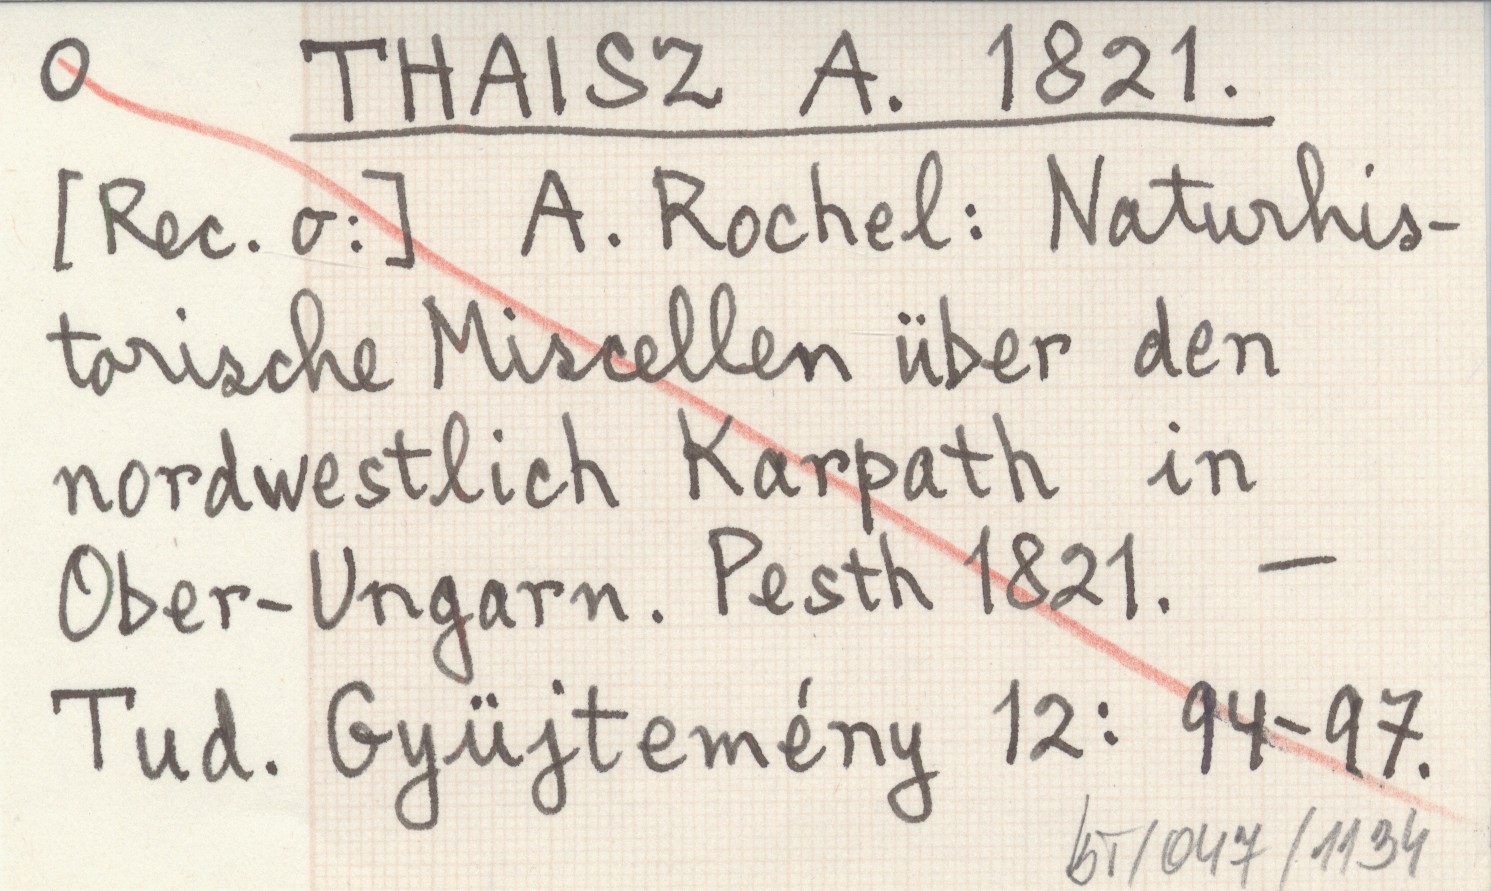 O THAISZ A. 1821.
[Rec. o:] A. Rochel: Naturhis-
torische Miscellen über den
nordwestlich Karpath in
Ober-Ungarn. Pesth 1821. —
Tud. Gyüjtemény 12: 94-97.
bT/047/1134